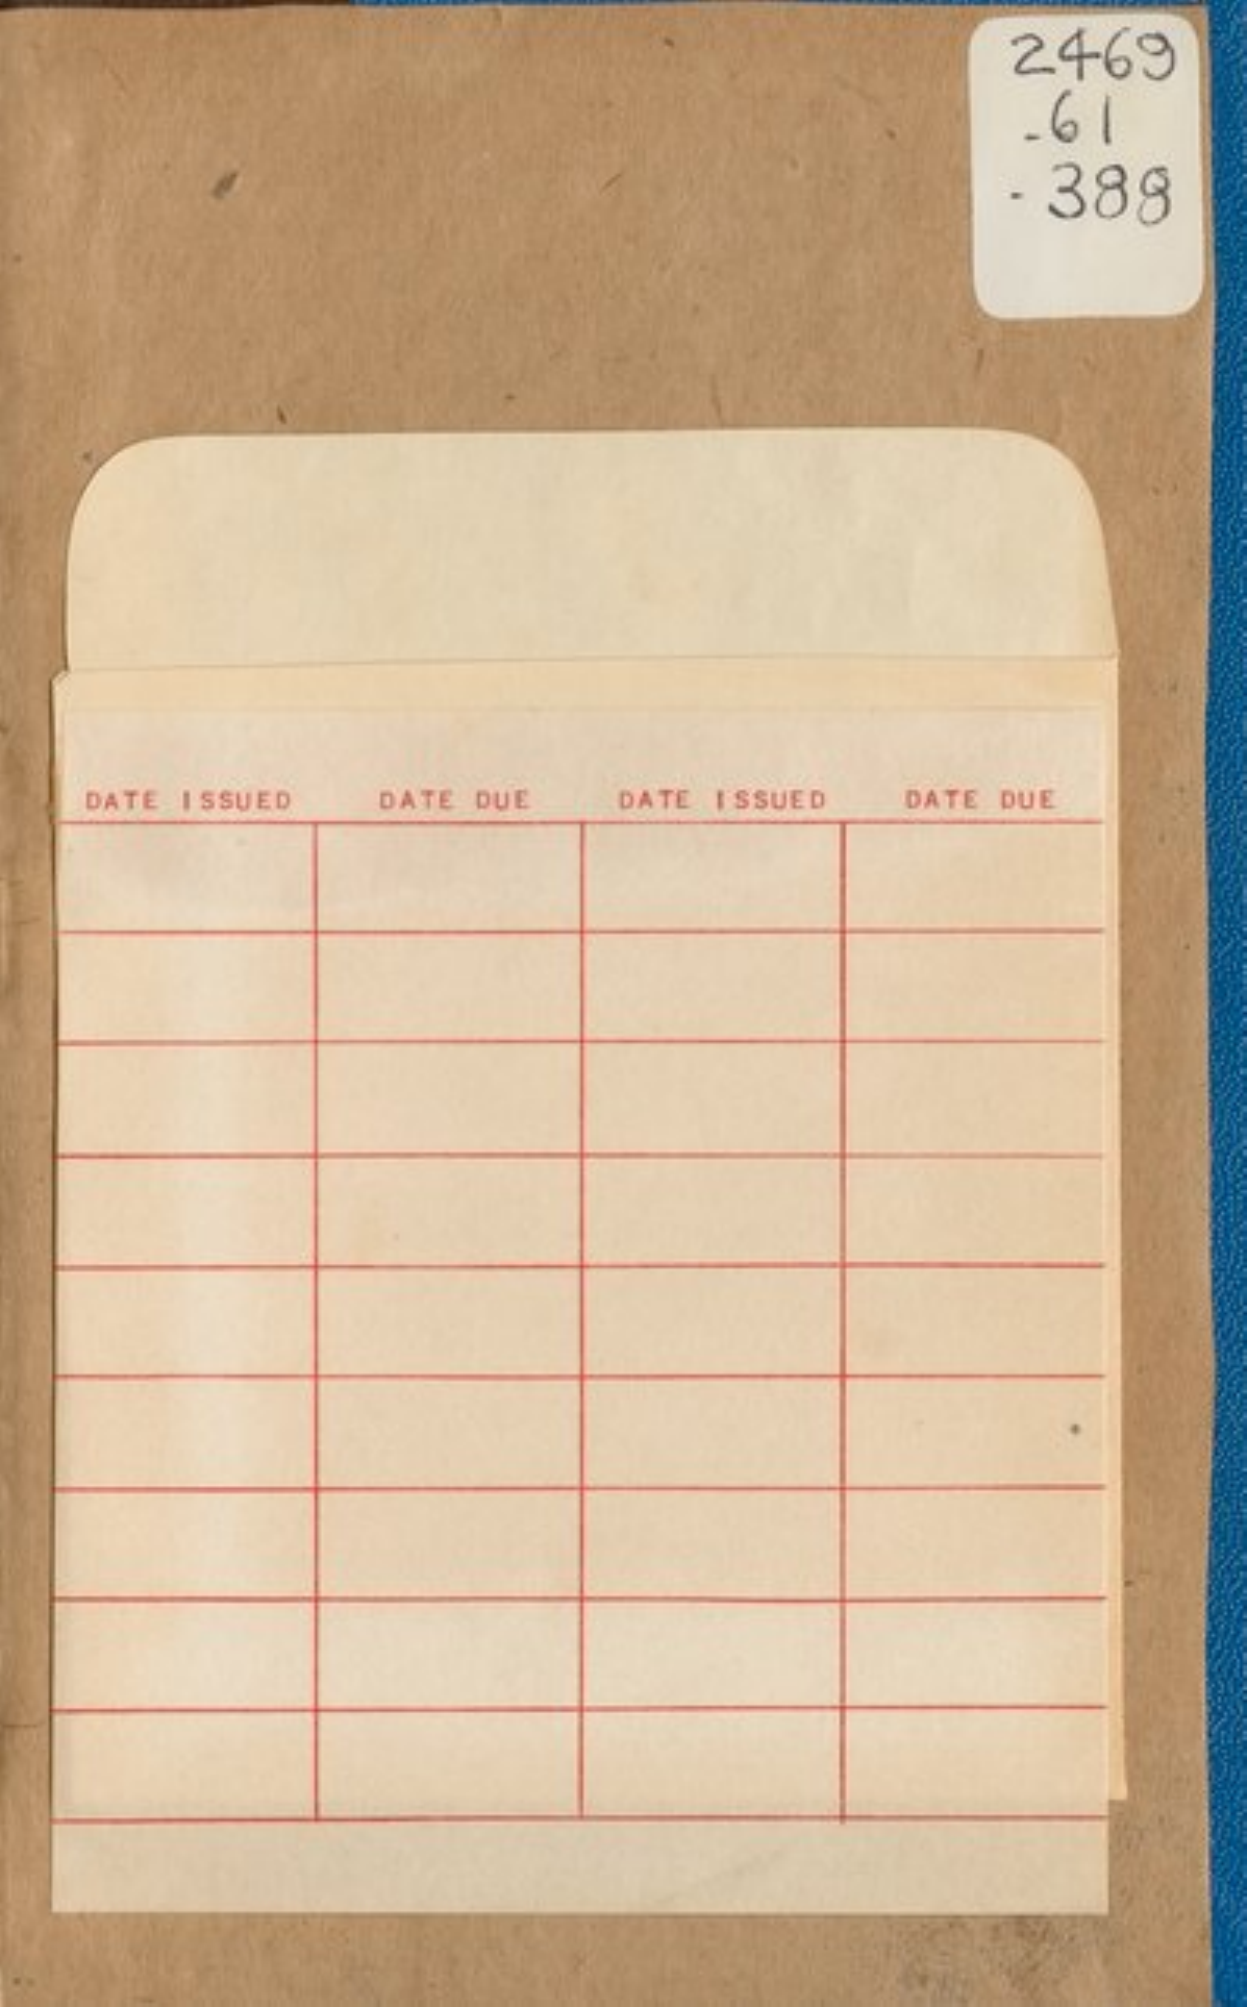 2469
.61
.388
DATE ISSUED DATE DUE DATE ISSUED DATE DUE